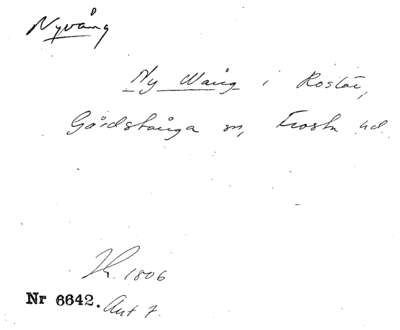 Nyvång
Ny Wång i Roslät,
Gårdstånga sn, Frosta hd.
1806
Nr 6642. Ant 7.